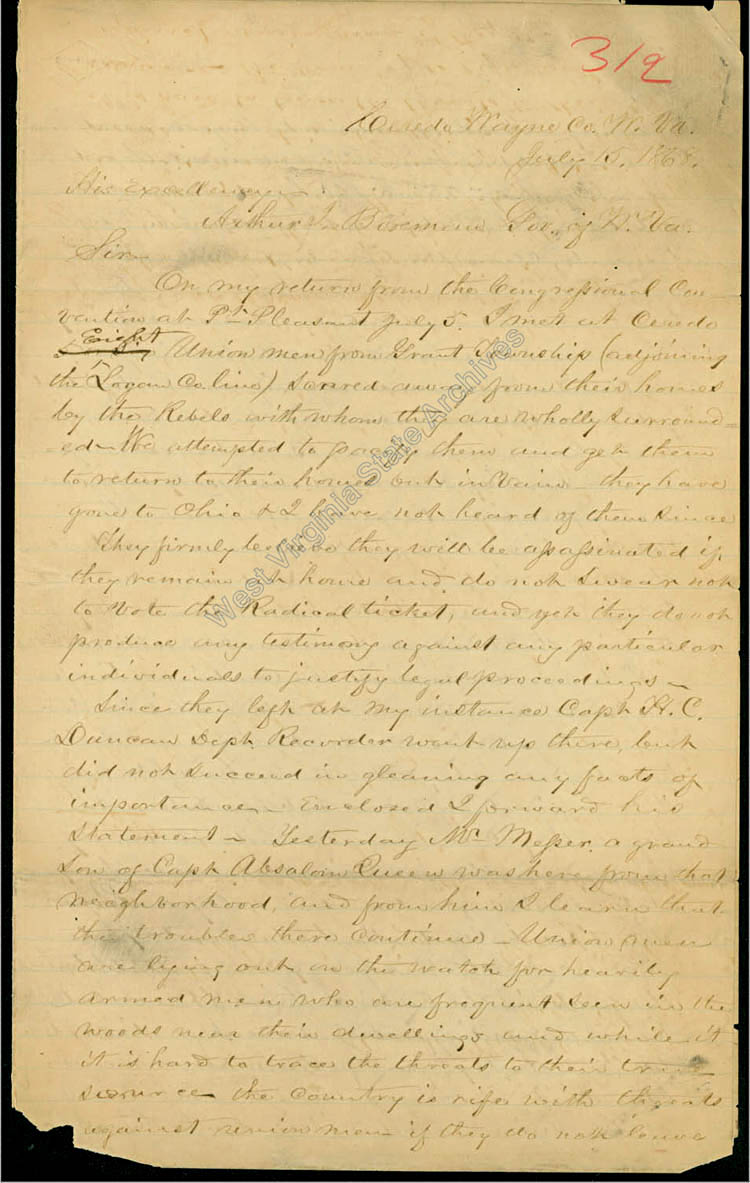 319
Ceredo Wayne Co. W. Va.
July 15. 1868.
His Excellency
Arthur I. Boreman Gov. of W. Va.
Sir
On my return from the Congressional Con-
vention at Pt. Pleasant July 5. I met at Ceredo
Eight Union men from Grant Township (adjoining
the Logan Co. line) scared away from their homes
by the Rebels with whom they are wholly surround=
=ed. We attempted to pacify them and get them
to return to their homes but in vain they have
gone to Ohio & I have not heard of them since
They firmly believe they will be assassinated if
they remain at home and do not swear not
to vote the Radical ticket, and yet they do not
produce any testimony against any particular
individuals to justify legal proceedings –
Since they left at my instance Capt H. C.
Duncan Dept. Recorder went up there, but
did not succeed in gleaning any facts of
importance – Enclosed I forward his
statement – Yesterday Mr Messer. a grand
son of Capt Absalom Queen was here from that
neighborhood, and from him I learn that
the troubles there continue – Union men
are lying out on the watch for heavily
armed men who are frequent seen in the
woods near their dwellings and while it
it is hard to trace the threats to their true
source the country is rife with threats
against union men if they do not leave
West Virginia State Archives